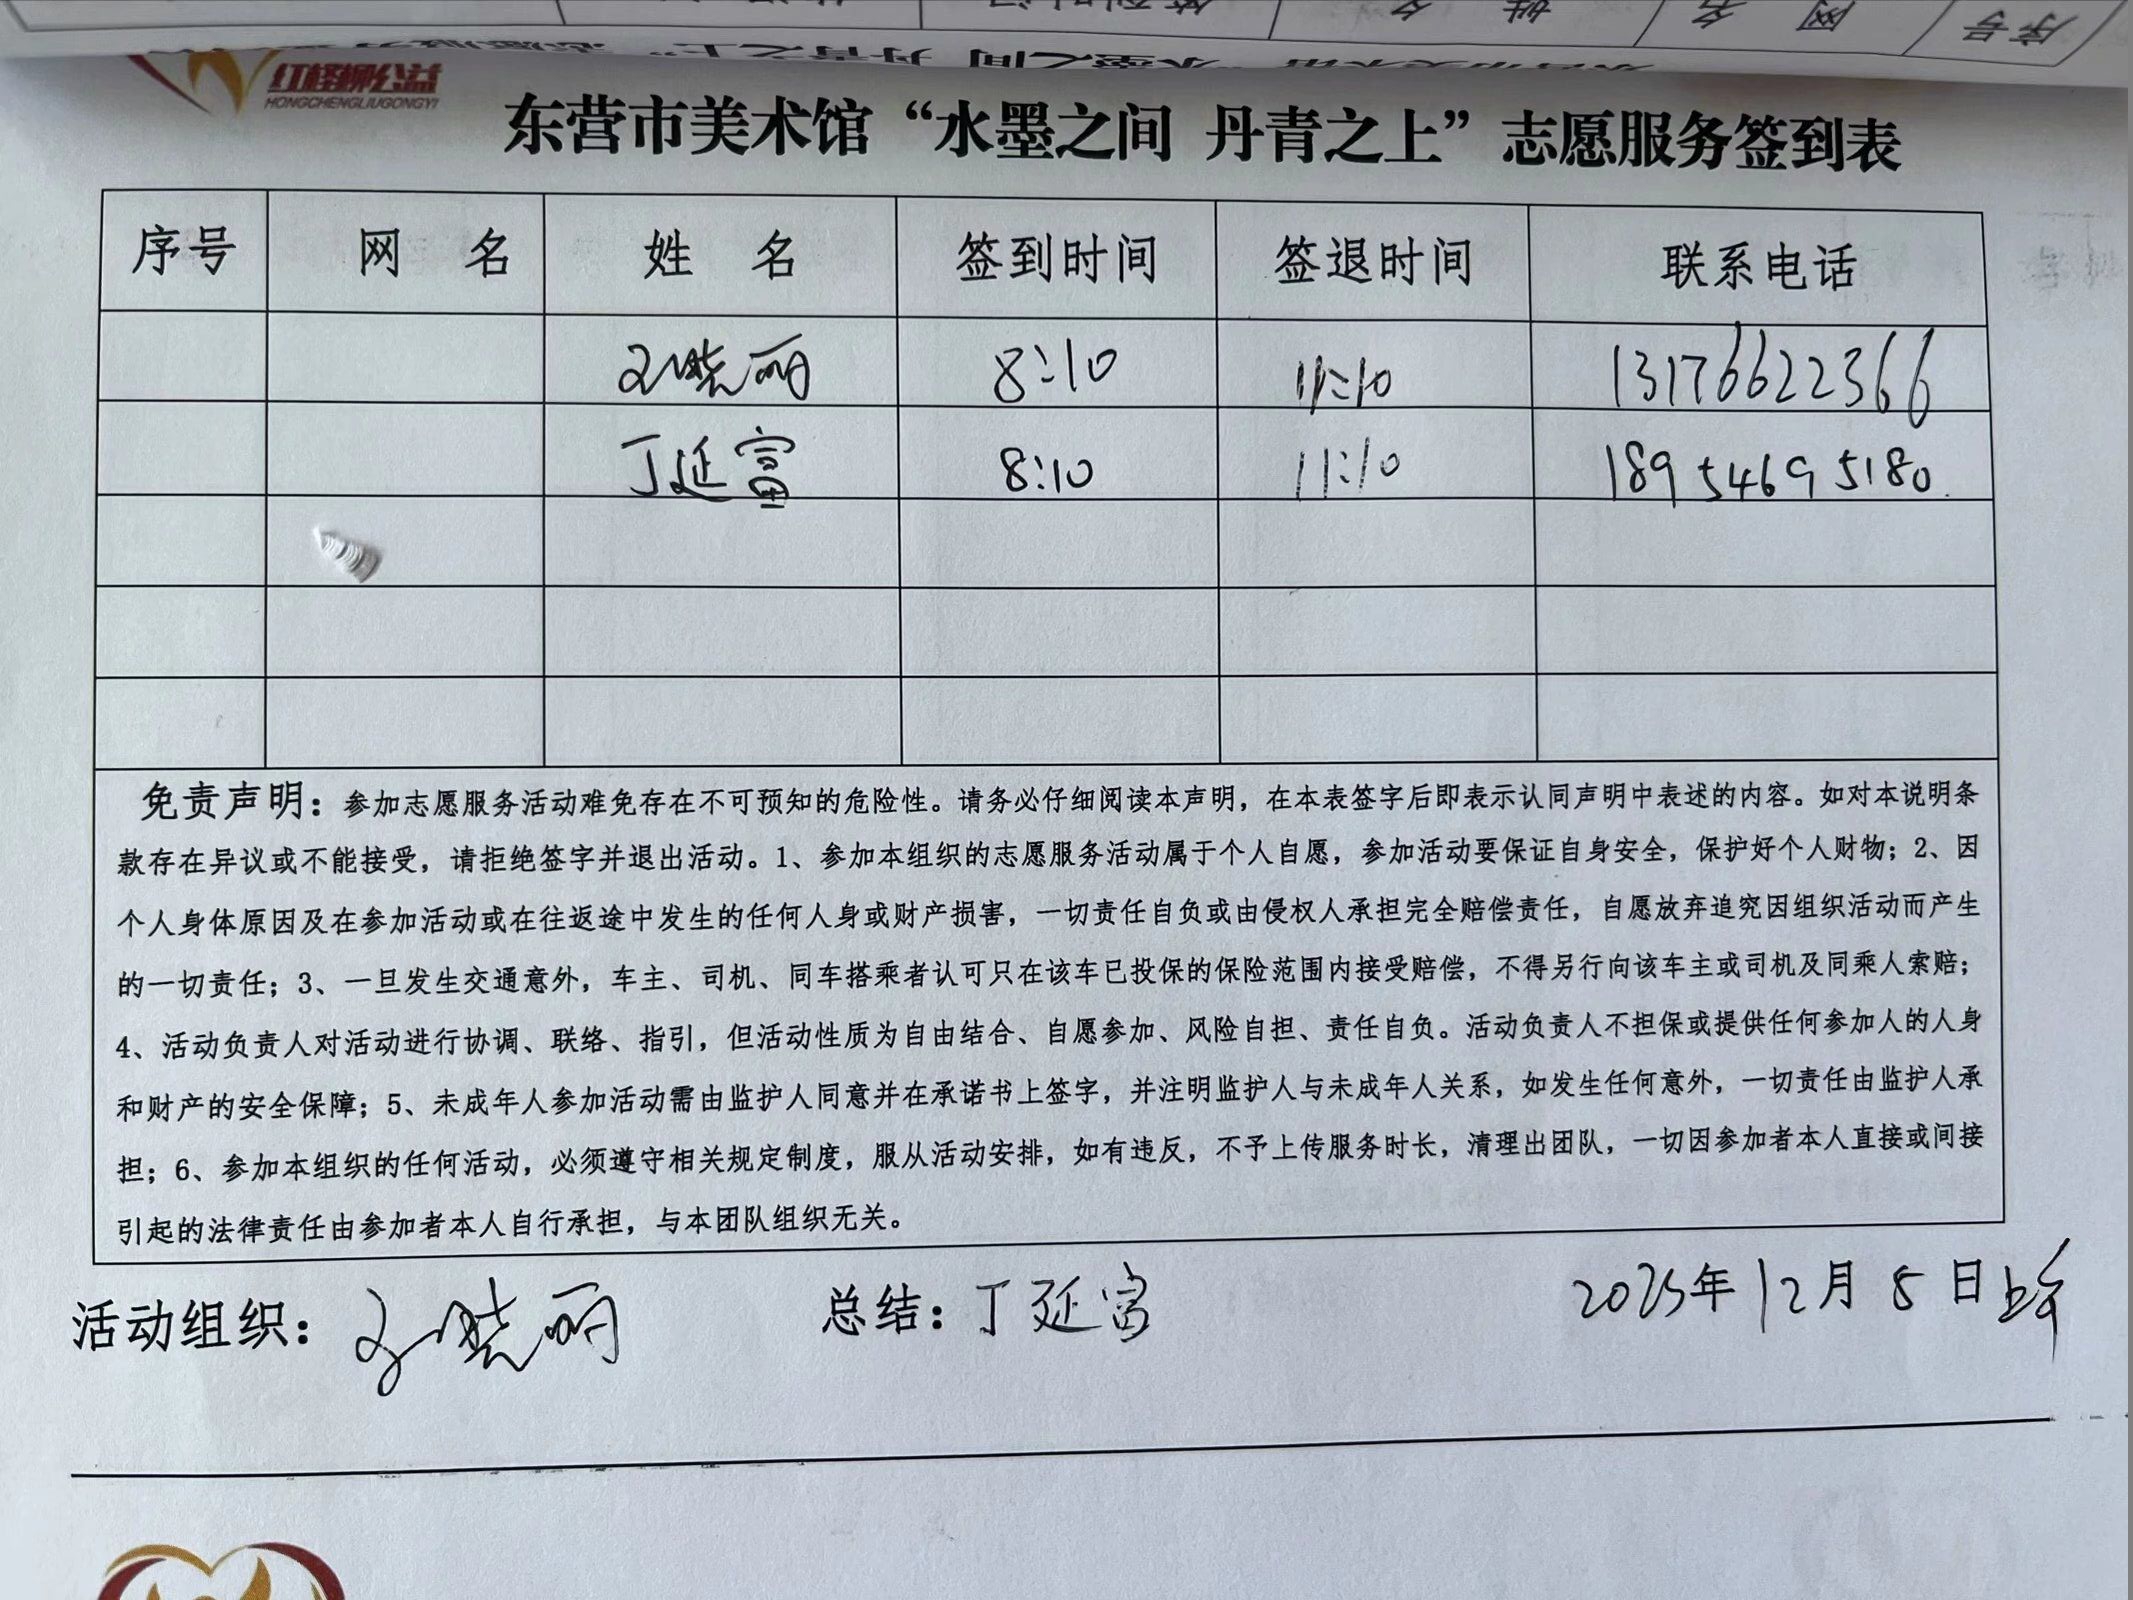 序号 网 名 姓 名 签到时间
红柽柳公益
HONGCHENGLIUGONGYI
东营市美术馆“水墨之间 丹青之上”志愿服务签到表
序号 网 名 姓 名 签到时间 签退时间 联系电话
晓丽 8:10 11:10 13176622366
丁延富 8:10 11:10 18954695180.
免责声明：参加志愿服务活动难免存在不可预知的危险性。请务必仔细阅读本声明，在本表签字后即表示认同声明中表述的内容。如对本说明条
款存在异议或不能接受，请拒绝签字并退出活动。1、参加本组织的志愿服务活动属于个人自愿，参加活动要保证自身安全，保护好个人财物；2、因
个人身体原因及在参加活动或在往返途中发生的任何人身或财产损害，一切责任自负或由侵权人承担完全赔偿责任，自愿放弃追究因组织活动而产生
的一切责任；3、一旦发生交通意外，车主、司机、同车搭乘者认可只在该车已投保的保险范围内接受赔偿，不得另行向该车主或司机及同乘人索赔；
4、活动负责人对活动进行协调、联络、指引，但活动性质为自由结合、自愿参加、风险自担、责任自负。活动负责人不担保或提供任何参加人的人身
和财产的安全保障；5、未成年人参加活动需由监护人同意并在承诺书上签字，并注明监护人与未成年人关系，如发生任何意外，一切责任由监护人承
担；6、参加本组织的任何活动，必须遵守相关规定制度，服从活动安排，如有违反，不予上传服务时长，清理出团队，一切因参加者本人直接或间接
引起的法律责任由参加者本人自行承担，与本团队组织无关。
活动组织：晓丽 总结：丁延富 2025年12月5日上午